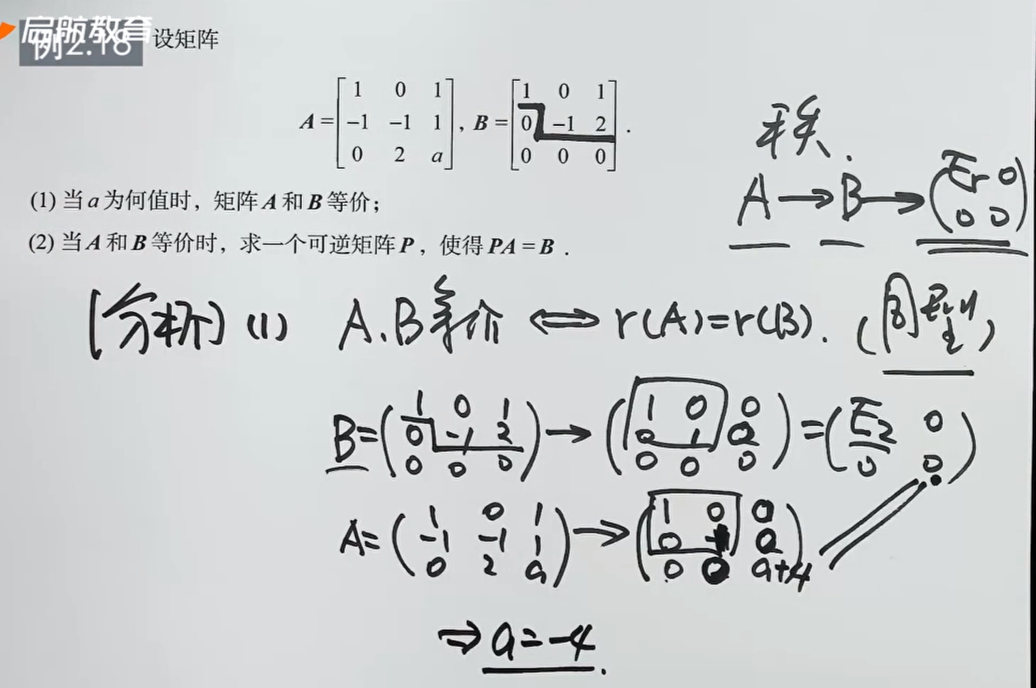 启航教育
例2.18 设矩阵
A = [1 0 1; -1 -1 1; 0 2 a], B = [1 0 1; 0 -1 2; 0 0 0].
(1) 当 a 为何值时，矩阵 A 和 B 等价；
(2) 当 A 和 B 等价时，求一个可逆矩阵 P，使得 PA = B．
A → B → (Er 0; 0 0)
[分析] (1) A.B等价 ⟺ r(A)=r(B).
B=(1 0 1; 0 -1 2; 0 0 0) → (1 0 0; 0 1 0; 0 0 0) = (E2 0; 0 0)
A=(1 0 1; -1 -1 1; 0 2 a) → (1 0 0; 0 0; 0 0 a+4)
⇒ a=-4.